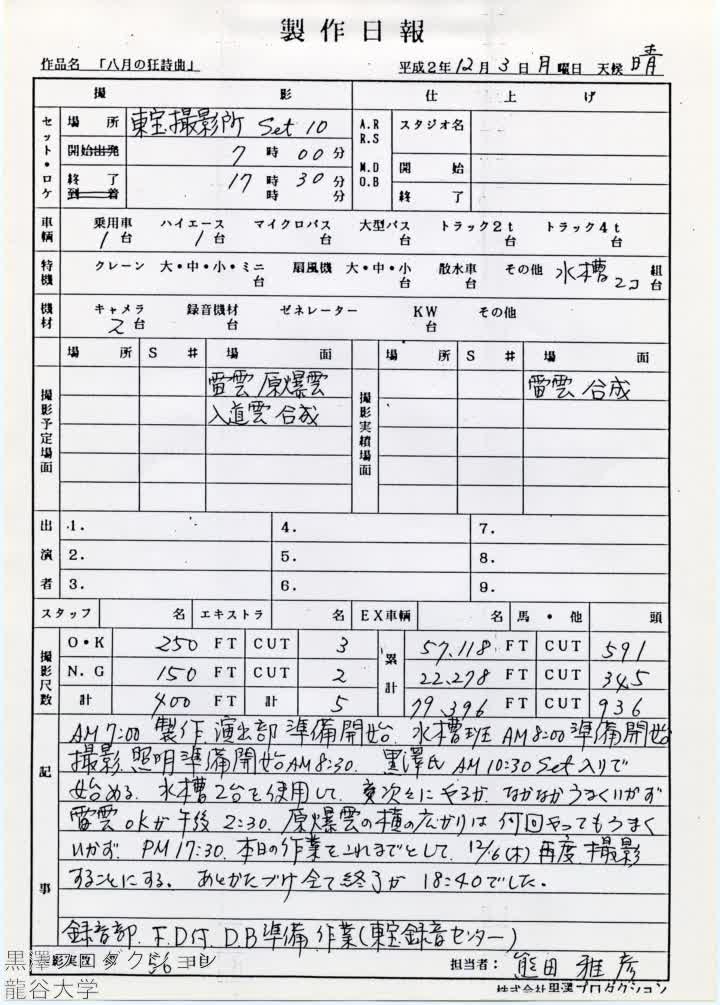 製作日報
作品名 「八月の狂詩曲」 平成2年12月3日月曜日 天候 晴
撮影 仕上げ
セット・ロケ 場所 東宝撮影所 Set 10 A.R R.S M.D O.B スタジオ名
開始出発 7時00分 開始
終了 到着 17時30分 時 分 終了
車輌 乗用車 1台 ハイエース 1台 マイクロバス 台 大型バス 台 トラック2t 台 トラック4t 台
特機 クレーン 大・中・小・ミニ 台 扇風機 大・中・小 台 散水車 台 その他 水槽 2コ 組 台
機材 キャメラ 2台 録音機材 台 ゼネレーター KW 台 その他
撮影予定場面 場所 S # 場面 撮影実績場面 場所 S # 場面
雷雲 原爆雲 雷雲 合成
入道雲 合成
出演者 1. 4. 7.
2. 5. 8.
3. 6. 9.
スタッフ 名 エキストラ 名 EX車輌 名 馬・他 頭
撮影尺数 O・K 250 FT CUT 3 累計 57,118 FT CUT 591
N.G 150 FT CUT 2 22,278 FT CUT 345
計 400 FT 計 5 79,396 FT CUT 936
記事
AM7:00 製作 演出部 準備開始. 水槽班 AM8:00 準備開始
撮影 照明準備開始AM8:30. 黒澤氏 AM10:30 Set入りで
始める. 水槽2台を使用して. 交次々にやるが なかなかうまくいかず
雷雲OKが午後2:30. 原爆雲の横の広がりは何回やってもうまく
いかず PM17:30. 本日の作業をこれまでとして. 12/6(木)再度撮影
することにする。あとかたづけ全て終了が 18:40でした.
録音部. F.D付. D.B準備作業(東宝録音センター)
影実数 56 担当者: 熊田雅彦
株式会社黒澤プロダクション
黒澤プロダクション
龍谷大学